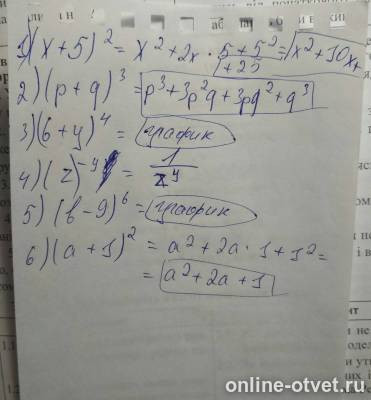 1) (x+5)² = x² + 2x · 5 + 5² = x² + 10x +
+ 25
2) (p+q)³ = p³ + 3p²q + 3pq² + q³
3) (6+y)⁴ = график
4) (z)⁻⁹ = 1/z⁹
5) (b-9)⁶ = график
6) (a+1)² = a² + 2a · 1 + 1² =
= a² + 2a + 1
online-otvet.ru